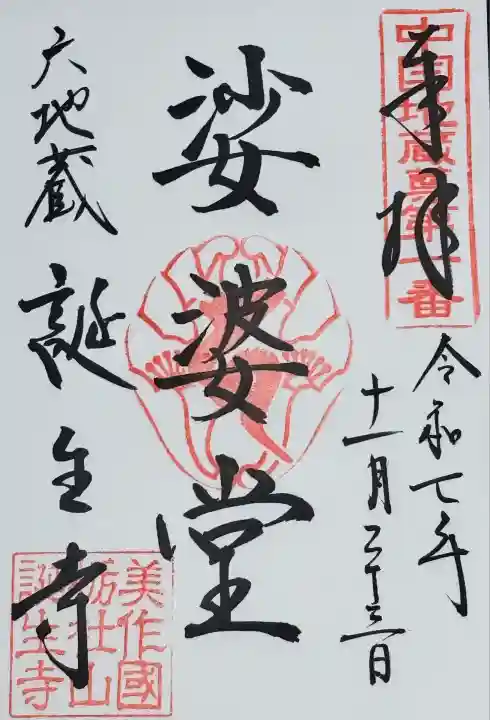 中国地蔵尊第番
奉拝
令和七年
十一月二十三日
娑婆堂
六地蔵
誕生寺
美作國
栃社山
誕生寺